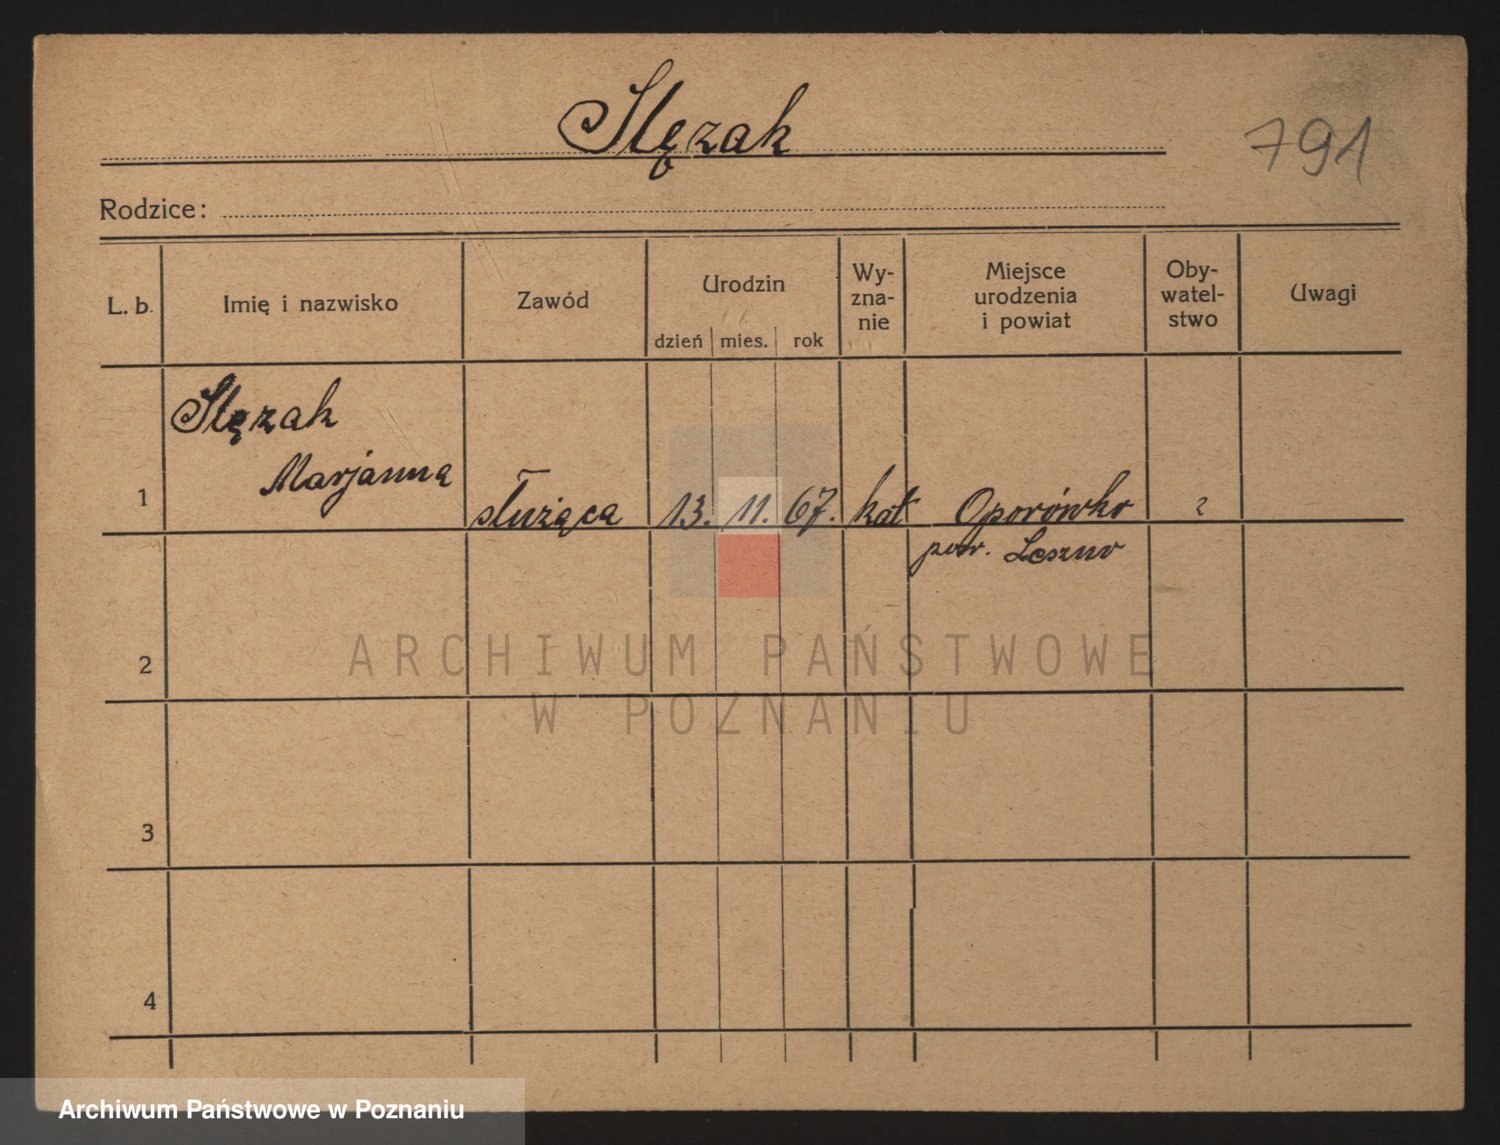 Stęzak
791
Rodzice:
L. b.
Imię i nazwisko
Zawód
Urodzin
dzień
mies.
rok
Wy-
zna-
nie
Miejsce
urodzenia
i powiat
Oby-
watel-
stwo
Uwagi
Stęzak
Marjanna
1
służąca
13.
11.
67.
kat
Oporówko
pow. Leszno
2
ARCHIWUM PAŃSTWOWE
W POZNANIU
3
4
Archiwum Państwowe w Poznaniu